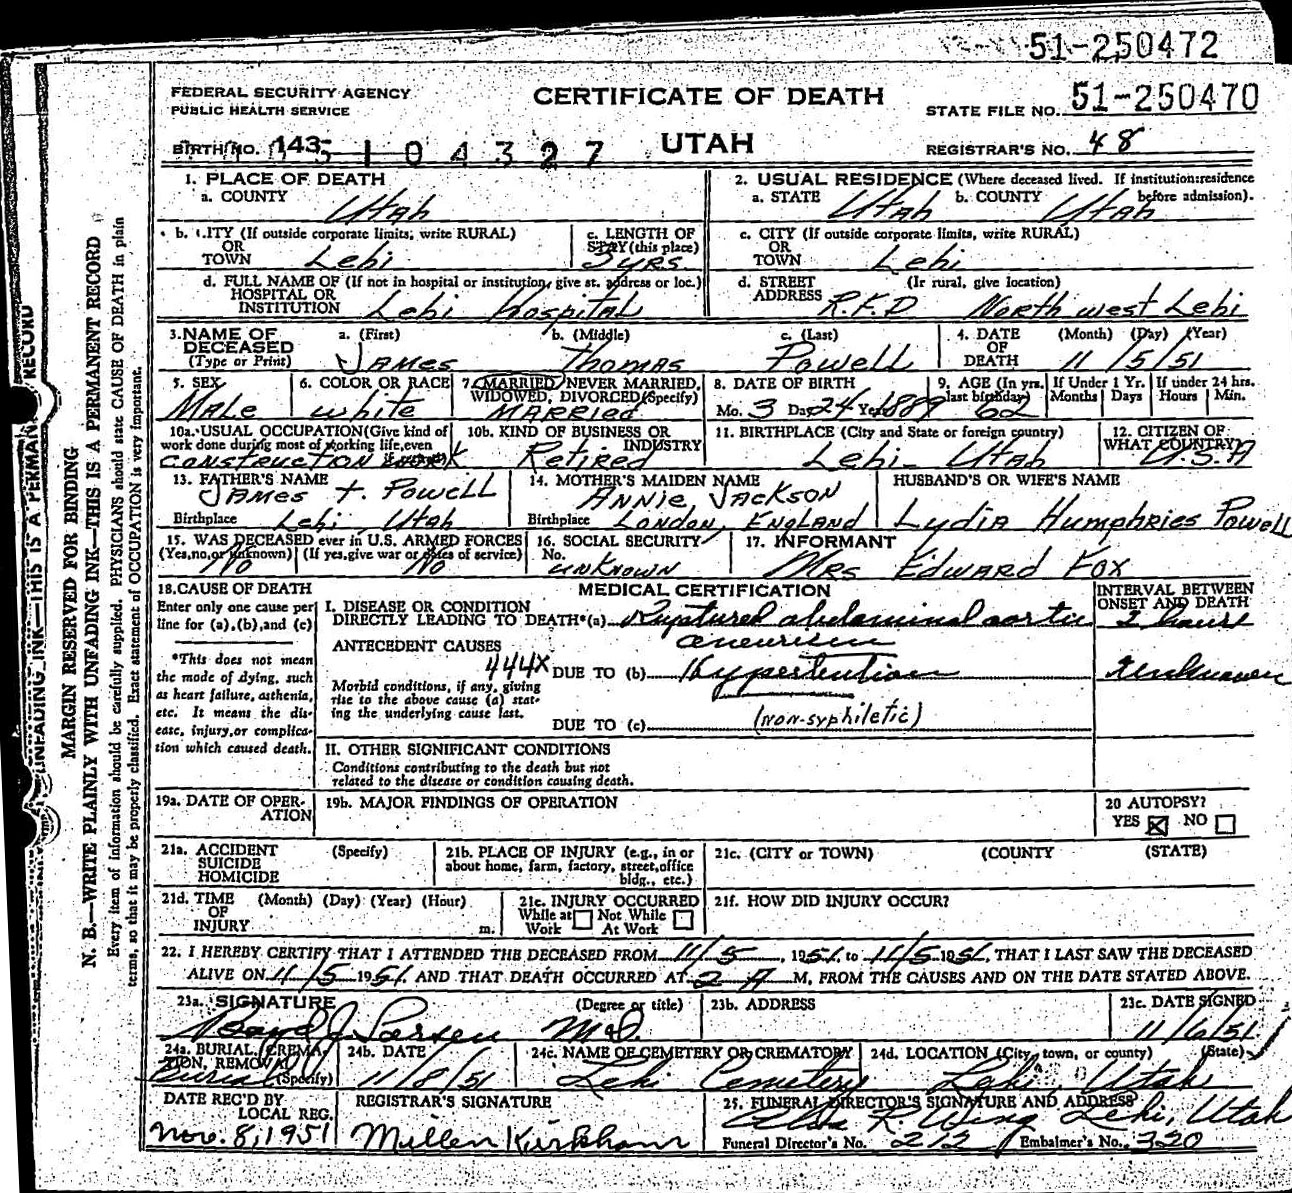 51-250472
FEDERAL SECURITY AGENCY
PUBLIC HEALTH SERVICE
CERTIFICATE OF DEATH
STATE FILE NO. 51-250470
BIRTH NO. 143 5 1 0 4 3 2 7
UTAH
REGISTRAR'S NO. 48
1. PLACE OF DEATH
a. COUNTY Utah
2. USUAL RESIDENCE (Where deceased lived. If institution: residence before admission).
a. STATE Utah b. COUNTY Utah
b. CITY (If outside corporate limits, write RURAL) OR TOWN Lehi
c. LENGTH OF STAY (this place) 3 yrs
c. CITY (If outside corporate limits, write RURAL) OR TOWN Lehi
d. FULL NAME OF (If not in hospital or institution, give st. address or loc.) HOSPITAL OR INSTITUTION Lehi Hospital
d. STREET ADDRESS (If rural, give location) R.F.D North west Lehi
3. NAME OF DECEASED (Type or Print)
a. (First) James
b. (Middle) Thomas
c. (Last) Powell
4. DATE OF DEATH (Month) (Day) (Year) 11/5/51
5. SEX Male
6. COLOR OR RACE white
7. MARRIED, NEVER MARRIED, WIDOWED, DIVORCED (Specify) MARRied
8. DATE OF BIRTH Mo. 3 Da. 24 Yr. 1889
9. AGE (In yrs. last birthday) 62
If Under 1 Yr. Months Days
If under 24 hrs. Hours Min.
10a. USUAL OCCUPATION (Give kind of work done during most of working life, even if retired) construction work
10b. KIND OF BUSINESS OR INDUSTRY Retired
11. BIRTHPLACE (City and State or foreign country) Lehi- Utah
12. CITIZEN OF WHAT COUNTRY? U.S.A
13. FATHER'S NAME James T. Powell
Birthplace Lehi, Utah
14. MOTHER'S MAIDEN NAME Annie Jackson
Birthplace London, England
HUSBAND'S OR WIFE'S NAME
Lydia Humphries Powell
15. WAS DECEASED ever in U.S. ARMED FORCES
(Yes, no, or unknown) No (If yes, give war or dates of service) No
16. SOCIAL SECURITY No. unknown
17. INFORMANT Mrs Edward Fox
18. CAUSE OF DEATH
Enter only one cause per line for (a), (b), and (c)
*This does not mean the mode of dying, such as heart failure, asthenia, etc. It means the disease, injury, or complication which caused death.
MEDICAL CERTIFICATION
INTERVAL BETWEEN ONSET AND DEATH
I. DISEASE OR CONDITION DIRECTLY LEADING TO DEATH*(a) Ruptured abdominal aortic aneurism 2 hours
ANTECEDENT CAUSES
444X DUE TO (b) Hypertention Unknown
Morbid conditions, if any, giving rise to the above cause (a) stating the underlying cause last.
DUE TO (c) (non-syphiletic)
II. OTHER SIGNIFICANT CONDITIONS
Conditions contributing to the death but not related to the disease or condition causing death.
19a. DATE OF OPERATION
19b. MAJOR FINDINGS OF OPERATION
20 AUTOPSY?
YES ☒ NO ☐
21a. ACCIDENT SUICIDE HOMICIDE (Specify)
21b. PLACE OF INJURY (e.g., in or about home, farm, factory, street, office bldg., etc.)
21c. (CITY or TOWN) (COUNTY) (STATE)
21d. TIME OF INJURY (Month) (Day) (Year) (Hour) m.
21e. INJURY OCCURRED
While at Work ☐ Not While At Work ☐
21f. HOW DID INJURY OCCUR?
22. I HEREBY CERTIFY THAT I ATTENDED THE DECEASED FROM 11/5, 1951, to 11/5 1951, THAT I LAST SAW THE DECEASED
ALIVE ON 11/5 1951 AND THAT DEATH OCCURRED AT 2 A M, FROM THE CAUSES AND ON THE DATE STATED ABOVE.
23a. SIGNATURE (Degree or title) Boyd J Larsen M.D.
23b. ADDRESS
23c. DATE SIGNED 11/6/51
24a. BURIAL, CREMATION, REMOVAL (Specify) Burial
24b. DATE 11/8/51
24c. NAME OF CEMETERY OR CREMATORY Lehi Cemetery
24d. LOCATION (City, town, or county) (State) Lehi, Utah
DATE REC'D BY LOCAL REG. Nov. 8, 1951
REGISTRAR'S SIGNATURE Millen Kirkham
25. FUNERAL DIRECTOR'S SIGNATURE AND ADDRESS R. Wing Lehi, Utah
Funeral Director's No. 212 Embalmer's No. 320
MARGIN RESERVED FOR BINDING
N. B.—WRITE PLAINLY WITH UNFADING INK—THIS IS A PERMANENT RECORD
Every item of information should be carefully supplied. PHYSICIANS should state CAUSE OF DEATH in plain
terms, so that it may be properly classified. Exact statement of OCCUPATION is very important.
UNFADING INK—THIS IS A PERMANENT RECORD